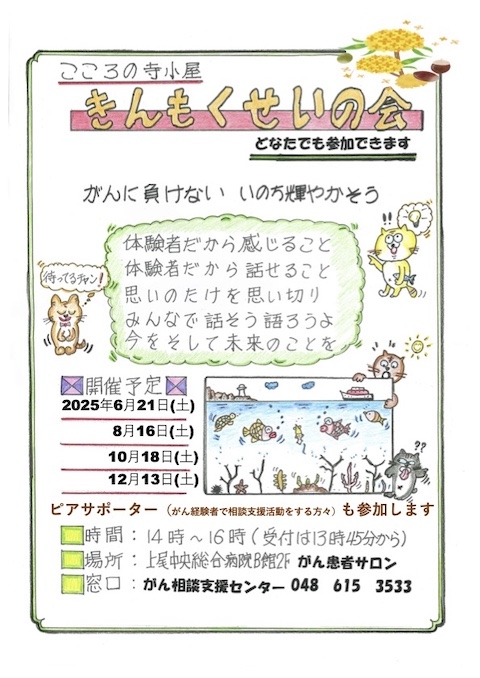 こころの寺小屋
きんもくせいの会
どなたでも参加できます
がんに負けない いのち輝やかそう
体験者だから感じること
体験者だから話せること
思いのたけを思い切り
みんなで話そう語ろうよ
今をそして未来のことを
待ってるチャン!
!!
開催予定
2025年6月21日(土)
8月16日(土)
10月18日(土)
12月13日(土)
??
ピアサポーター（がん経験者で相談支援活動をする方々）も参加します
時間：14時～16時(受付は13時45分から)
場所：上尾中央総合病院B館2F がん患者サロン
窓口：がん相談支援センター 048 615 3533